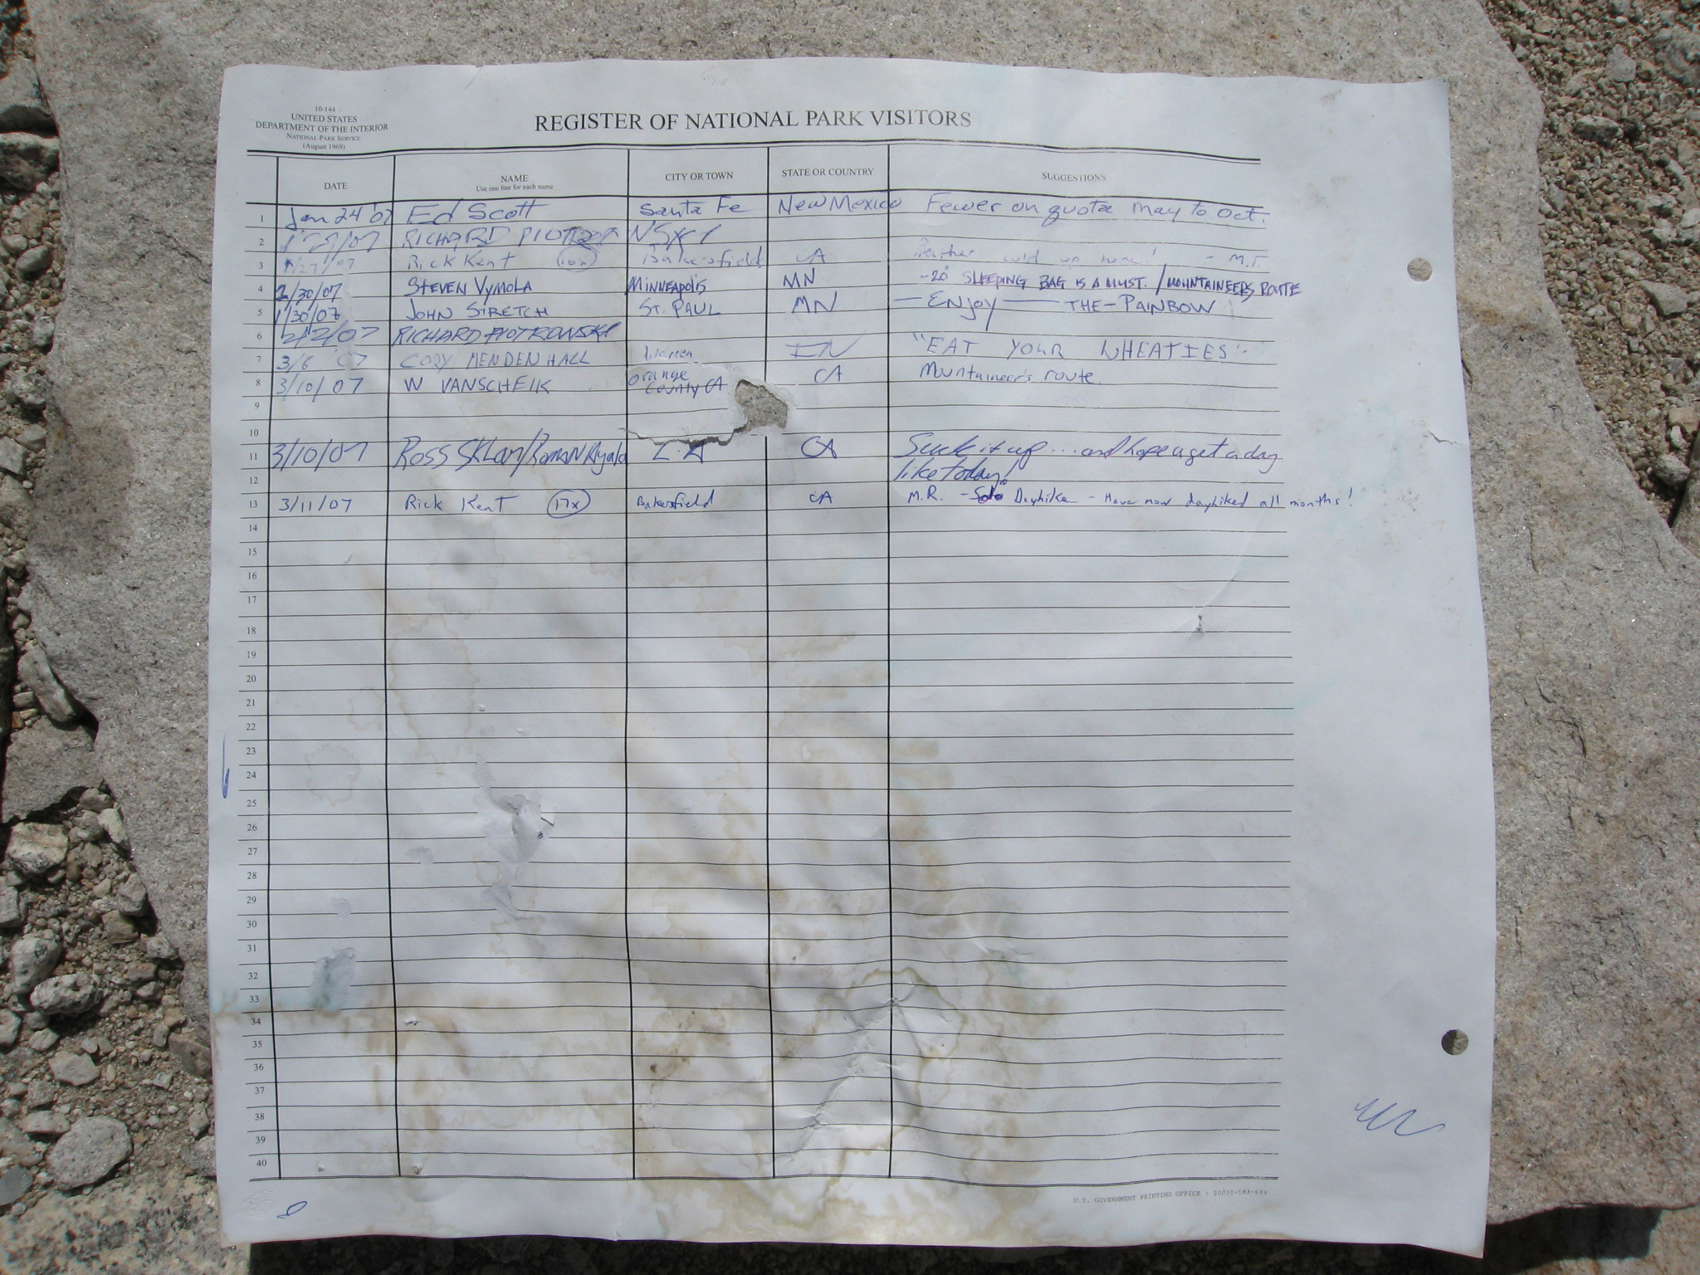 10-144
UNITED STATES
DEPARTMENT OF THE INTERIOR
NATIONAL PARK SERVICE
(August 1969)
REGISTER OF NATIONAL PARK VISITORS
DATE NAME CITY OR TOWN STATE OR COUNTRY SUGGESTIONS
Use one line for each name
1 Jan 24 '07 Ed Scott Santa Fe New Mexico Fewer on quota May to Oct.
2 RICHARD PIOTROWSKI
3 1/27/07 Rick Kent Bakersfield CA - M.R.
4 2/30/07 STEVEN VYMOLA MINNEAPOLIS MN -20° SLEEPING BAG IS A MUST. / MOUNTAINEERS ROUTE
5 1/30/07 JOHN STRETCH ST. PAUL MN — ENJOY — THE - PAINBOW
6 2/2/07 RICHARD PIOTROWSKI
7 3/6 07 CORY MENDENHALL IN "EAT YOUR WHEATIES"
8 3/10/07 W VANSCHEIK Orange County CA CA Mountaineer's route.
9
10
11 3/10/07 ROSS SKLAR/ROMAN L.A CA Suck it up ... and hope u get a day
12 like today!
13 3/11/07 Rick Kent (17x) Bakersfield CA M.R. - Solo Dayhike - Have now dayhiked all months!
14
15
16
17
18
19
20
21
22
23
24
25
26
27
28
29
30
31
32
33
34
35
36
37
38
39
40
U.S. GOVERNMENT PRINTING OFFICE